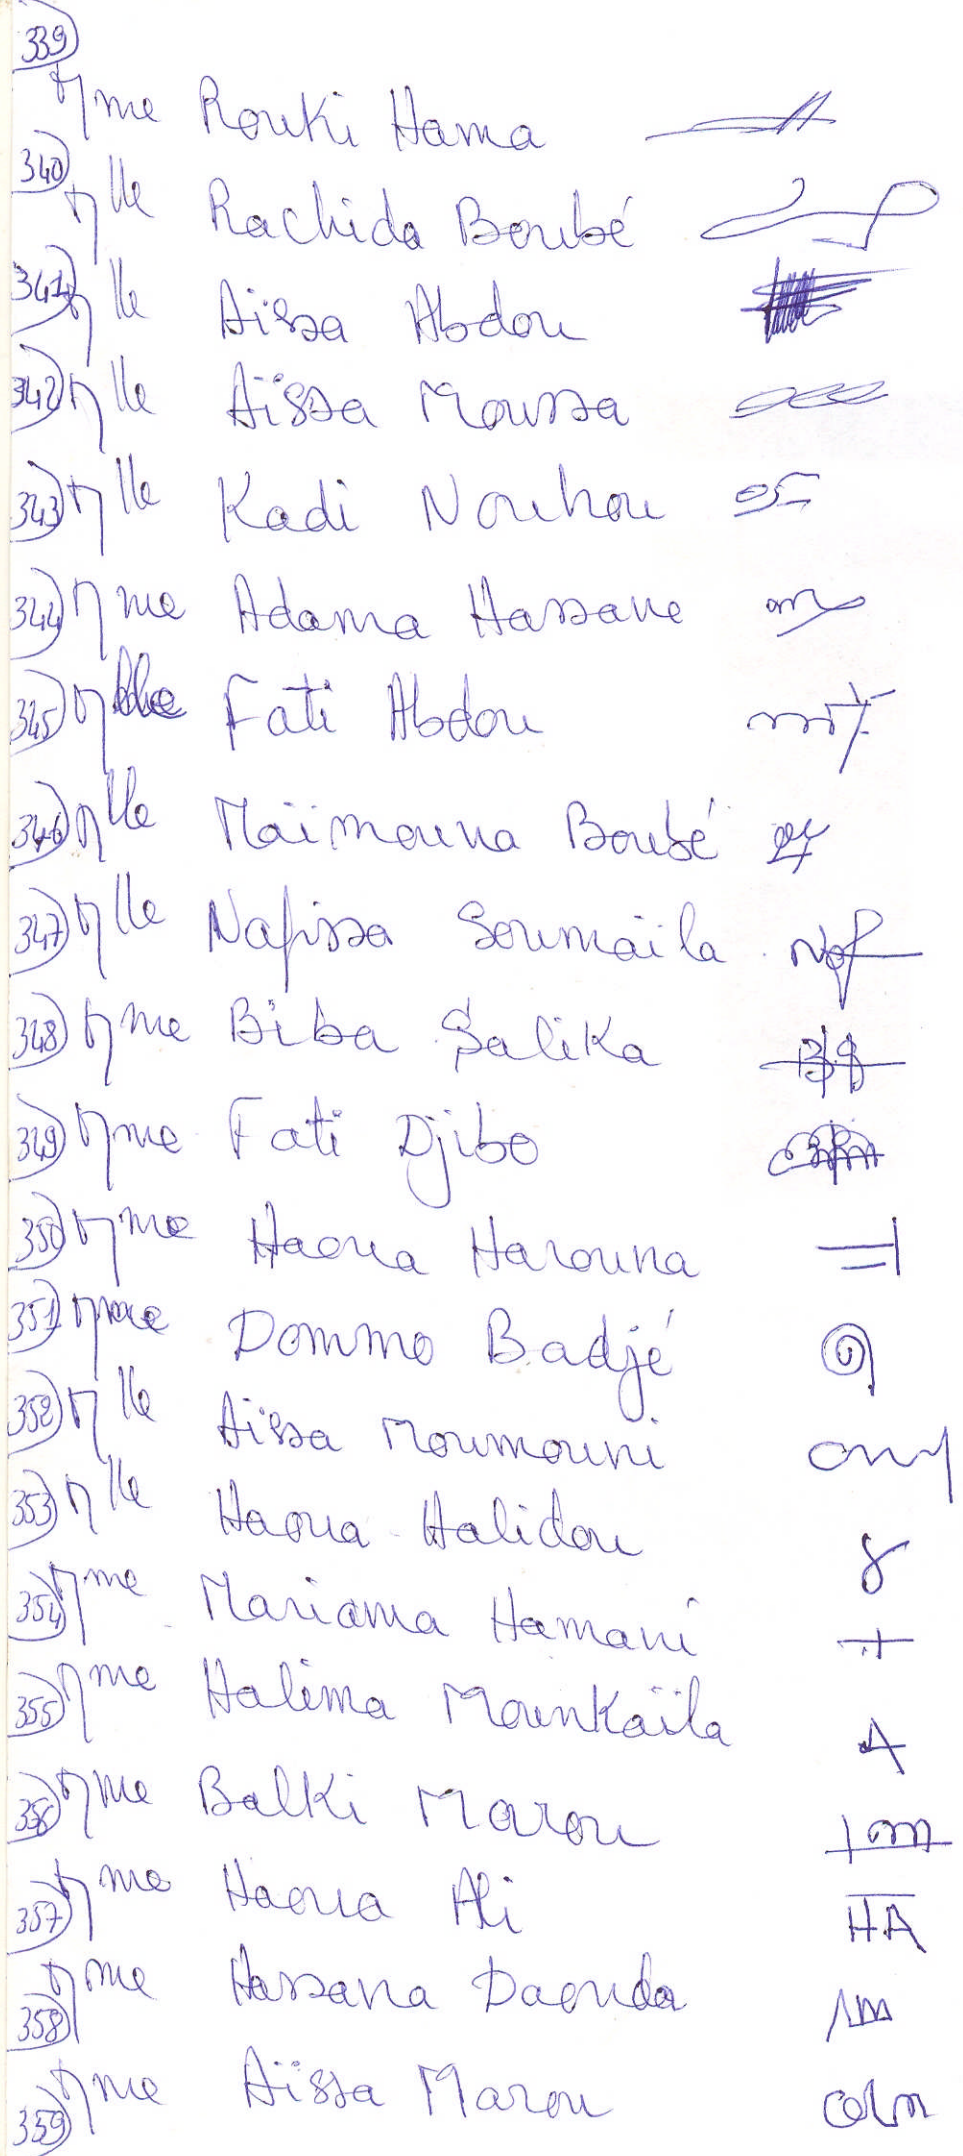 339 Mme Rouki Hama
340 Mlle Rachida Boubé
341 Mlle Aïssa Abdou
342 Mlle Aïssa Moussa
343 Mlle Kadi Nouhou
344 Mme Adama Hassane
345 Mlle Fati Abdou
346 Mlle Maïmouna Boubé
347 Mlle Nafissa Soumaila Naf
348 Mme Biba Salika
349 Mme Fati Djibo
350 Mme Haoua Harouna
351 Mme Dommo Badjé
352 Mlle Aïssa Moumouni
353 Mlle Haoua Halidou
354 Mme Mariama Hamani
355 Mme Halima Mounkaïla
356 Mme Balki Marou
357 Mme Haoua Ali HA
358 Mme Hassana Daouda
359 Mme Aïssa Marou